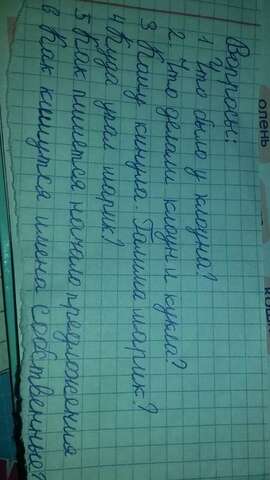 Вопросы:
1 Что было у клоуна?
2. Что делали клоун и кукла?
3 Кому кинула Полина шарик?
4 Куда упал шарик?
5 Как пишется начало предложения
6 Как кишутся имена собственные?
олень